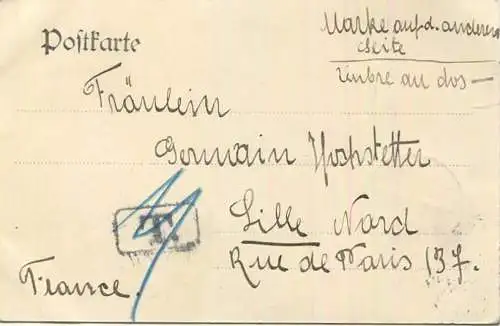 Postkarte
Marke auf d. anderen
Seite
Timbre au dos —
Fräulein
Germain Hochstetter
Lille Nord
Rue de Paris 137.
T
France.